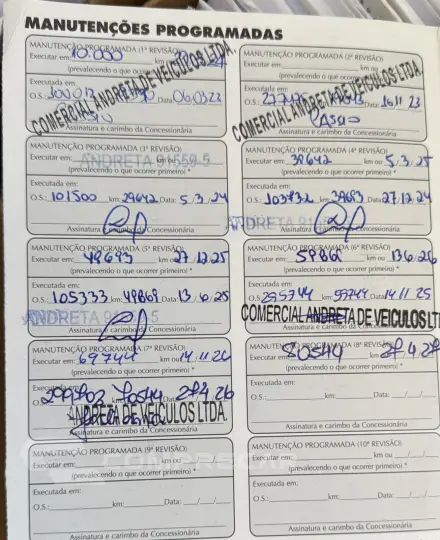 MANUTENÇÕES PROGRAMADAS
MANUTENÇÃO PROGRAMADA (1ª REVISÃO)
Executar em: 10.000 km ou
(prevalecendo o que ocorrer
Executada em:
O.S.: Data: 06.03.23
COMERCIAL ANDRETA DE VEICULOS LTDA.
Assinatura e carimbo da Concessionária
MANUTENÇÃO PROGRAMADA (2ª REVISÃO)
Executar em: km ou
(prevalecendo o que ocorrer
Executada em:
O.S.: Data: 16/11/23
COMERCIAL ANDRETA DE VEICULOS LTDA.
Assinatura e carimbo da Concessionária
MANUTENÇÃO PROGRAMADA (3ª REVISÃO)
Executar em: km ou
ANDRETA
(prevalecendo o que ocorrer primeiro) *
Executada em:
O.S.: 101500 km: 29642 Data: 5.3.24
Assinatura e carimbo da Concessionária
MANUTENÇÃO PROGRAMADA (4ª REVISÃO)
Executar em: 39642 km ou 5.3.25
(prevalecendo o que ocorrer primeiro) *
Executada em:
O.S.: 103732 km: 39693 Data: 27.12.24
ANDRETA
Assinatura e carimbo da Concessionária
MANUTENÇÃO PROGRAMADA (5ª REVISÃO)
Executar em: 49693 km ou 27.12.25
(prevalecendo o que ocorrer primeiro) *
Executada em:
O.S.: 105333 km: 49868 Data: 13.6.25
ANDRETA
Assinatura e carimbo da Concessionária
MANUTENÇÃO PROGRAMADA (6ª REVISÃO)
Executar em: 59868 km ou 13.6.26
(prevalecendo o que ocorrer primeiro) *
Executada em:
O.S.: 295744 km: 59744 Data: 14/11/25
COMERCIAL ANDRETA DE VEICULOS LT
Assinatura e carimbo da Concessionária
MANUTENÇÃO PROGRAMADA (7ª REVISÃO)
Executar em: 69744 km ou 14.11.26
(prevalecendo o que ocorrer primeiro) *
Executada em:
70544 27.4.26
ANDRETA DE VEICULOS LTDA.
Assinatura e carimbo da Concessionária
MANUTENÇÃO PROGRAMADA (8ª REVISÃO)
Executar em: 80544 km ou
(prevalecendo o que ocorrer primeiro) *
Executada em:
O.S.: km: Data: __/__/__
Assinatura e carimbo da Concessionária
MANUTENÇÃO PROGRAMADA (9ª REVISÃO)
Executar em: km ou
(prevalecendo o que ocorrer primeiro) *
Executada em:
O.S.: km: Data: __/__/__
Assinatura e carimbo da Concessionária
MANUTENÇÃO PROGRAMADA (10ª REVISÃO)
Executar em: km ou
(prevalecendo o que ocorrer primeiro) *
Executada em:
O.S.: km: Data: __/__/__
Assinatura e carimbo da Concessionária